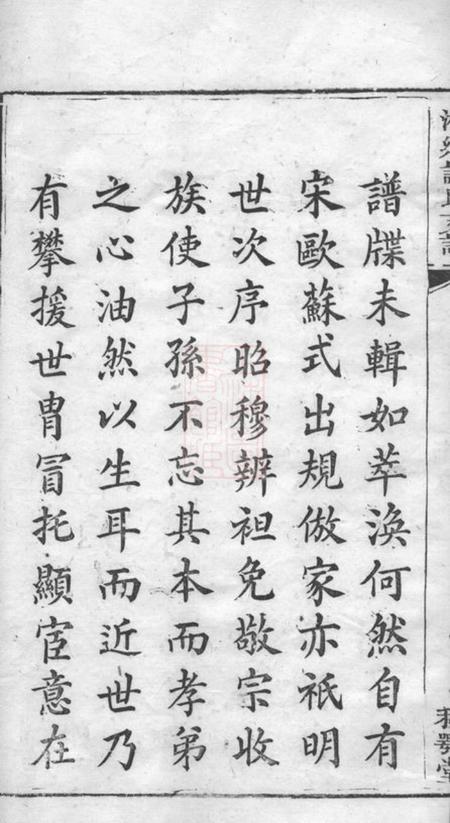 譜牒未輯如萃渙何然自有
宋歐蘇式出規倣家亦祇明
世次序昭穆辨袒免敬宗收
族使子孫不忘其本而孝弟
之心油然以生耳而近世乃
有攀援世胄冒托顯宦意在